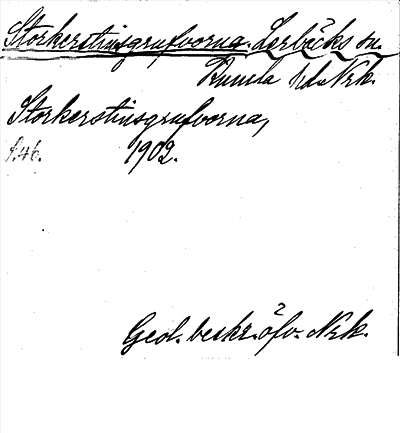 Storkerstinsgrufvorna. Lerbäcks sn.
Kumla hd. Nrk.
Storkerstinsgrufvorna,
s. 46. 1902.
Geol. beskr. öfv. Nrk.